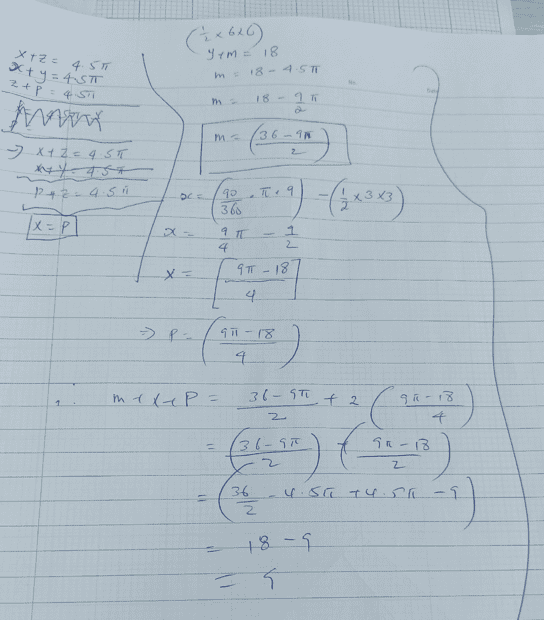 x+z = 4.5π
x+y = 4.5π
z+p = 4.5π
⇒ x+z = 4.5π
x+y = 4.5π
p+z = 4.5π
x = p
(1/2 × 6×6)
y+m = 18
m = 18 - 4.5π
m = 18 - 9/2 π
m = (36 - 9π / 2)
x = (90/360 × π × 9) - (1/2 × 3 × 3)
x = 9/4 π - 9/2
x = [9π - 18 / 4]
⇒ p = (9π - 18 / 4)
∴ m+x+p = 36 - 9π / 2 + 2 (9π - 18 / 4)
= (36 - 9π / 2) + (9π - 18 / 2)
= (36/2 - 4.5π + 4.5π - 9)
= 18 - 9
= 9